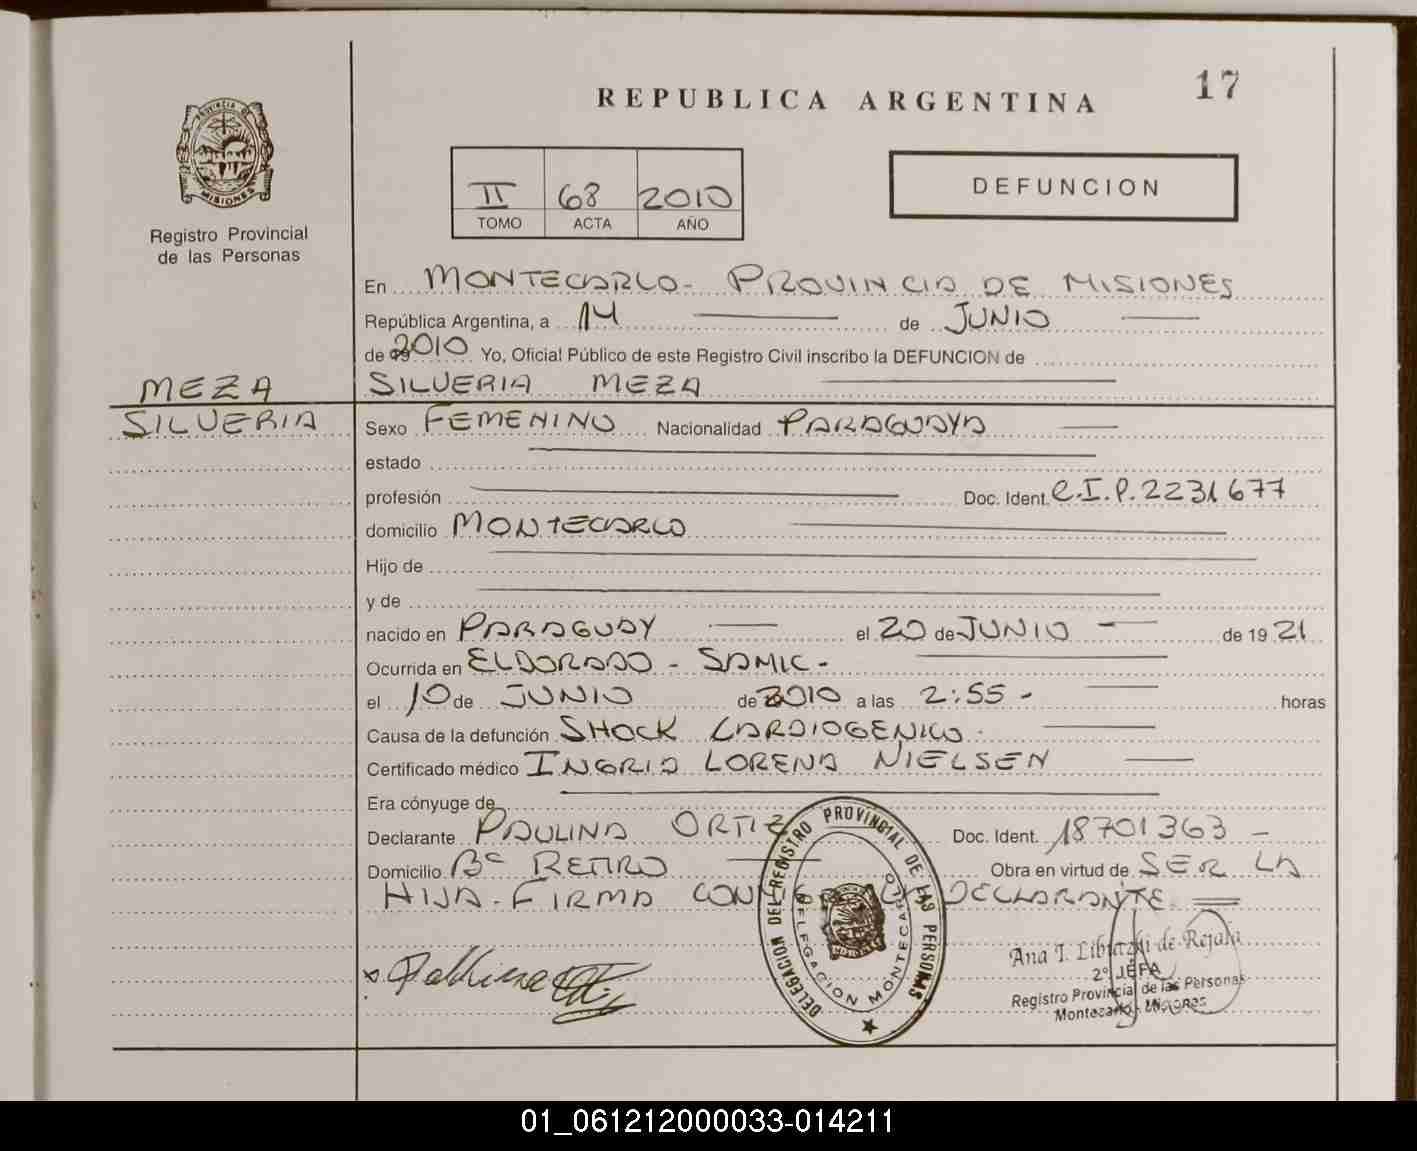 17
REPUBLICA ARGENTINA
PROVINCIA DE
MISIONES
Registro Provincial
de las Personas
II 68 2010
TOMO ACTA AÑO
DEFUNCION
En MONTECARLO - PROVINCIA DE MISIONES
República Argentina, a 14 de JUNIO
de 2010 Yo, Oficial Público de este Registro Civil inscribo la DEFUNCION de
MEZA
SILVERIA
SILVERIA MEZA
Sexo FEMENINO Nacionalidad PARAGUAYA
estado
profesión Doc. Ident. C.I.P. 2231677
domicilio MONTECARLO
Hijo de
y de
nacido en PARAGUAY el 20 de JUNIO de 1921
Ocurrida en ELDORADO - SAMIC -
el 10 de JUNIO de 2010 a las 2:55 - horas
Causa de la defunción SHOCK CARDIOGENICO.
Certificado médico INGRID LORENA NIELSEN
Era cónyuge de
Declarante PAULINA ORTIZ Doc. Ident. 18701363 -
Domicilio Bº RETIRO Obra en virtud de SER LA
HIJA - FIRMA CON DECLARANTE
DELEGACION DEL REGISTRO PROVINCIAL DE LAS PERSONAS
DELEGACION MONTECARLO
MISIONES
Ana T. de Rejala
2º JEFA
Registro Provincial de las Personas
Montecarlo - Misiones
01_061212000033-014211